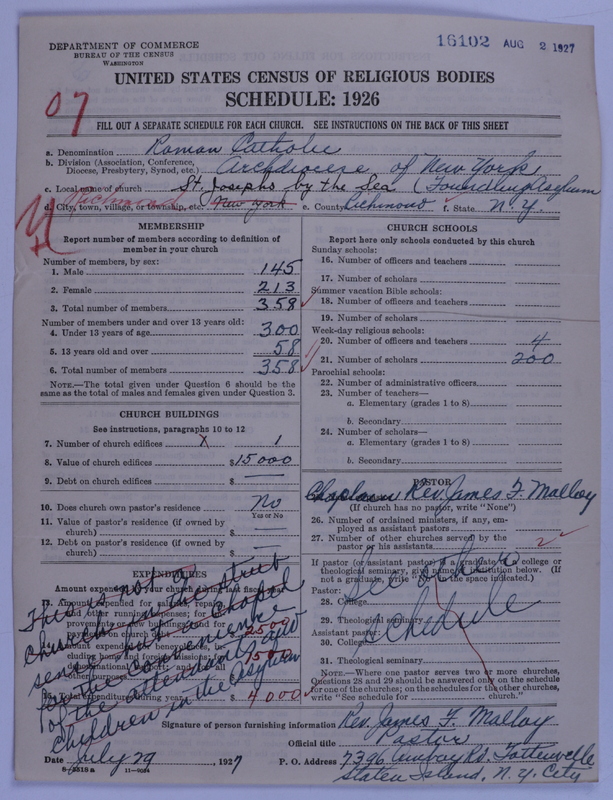 DEPARTMENT OF COMMERCE
BUREAU OF THE CENSUS
WASHINGTON
16102 AUG 2 1927
UNITED STATES CENSUS OF RELIGIOUS BODIES
SCHEDULE: 1926
07
FILL OUT A SEPARATE SCHEDULE FOR EACH CHURCH. SEE INSTRUCTIONS ON THE BACK OF THIS SHEET
a. Denomination Roman Catholic
b. Division (Association, Conference, Diocese, Presbytery, Synod, etc.) Archdiocese of New York
c. Local name of church St. Josephs by the Sea (Foundling Asylum
Richmond
d. City, town, village, or township, etc. New York e. County Richmond f. State N.Y.
MEMBERSHIP
Report number of members according to definition of member in your church
Number of members, by sex:
1. Male 145
2. Female 213
3. Total number of members 358
Number of members under and over 13 years old:
4. Under 13 years of age 300
5. 13 years old and over 58
6. Total number of members 358
NOTE.—The total given under Question 6 should be the same as the total of males and females given under Question 3.
CHURCH BUILDINGS
See instructions, paragraphs 10 to 12
7. Number of church edifices x 1
8. Value of church edifices $15000
9. Debt on church edifices $
10. Does church own pastor's residence No
Yes or No
11. Value of pastor's residence (if owned by church) $
12. Debt on pastor's residence (if owned by church) $
EXPENDITURES
Amount expended during last fiscal
2500
1500
year 4000
This is not a church in the strict sense but a chapel for the convenience of the attendants and children in the asylum
CHURCH SCHOOLS
Report here only schools conducted by this church
Sunday schools:
16. Number of officers and teachers
17. Number of scholars
Summer vacation Bible schools:
18. Number of officers and teachers
19. Number of scholars
Week-day religious schools:
20. Number of officers and teachers 4
21. Number of scholars 200
Parochial schools:
22. Number of administrative officers
23. Number of teachers—
a. Elementary (grades 1 to 8)
b. Secondary
24. Number of scholars—
a. Elementary (grades 1 to 8)
b. Secondary
PASTOR
Chaplain Rev. James F. Malloy
(If church has no pastor, write "None")
26. Number of ordained ministers, if any, employed as assistant pastors
27. Number of other churches served by the pastor or his assistants 2
If pastor (or assistant pastor) is a graduate of college or theological seminary, give name of institution below. (If not a graduate, write "No" in the space indicated.)
See other Schedule
Pastor:
28. College
29. Theological seminary
Assistant pastor:
30. College
31. Theological seminary
NOTE.—Where one pastor serves two or more churches, Questions 28 and 29 should be answered only on the schedule for one of the churches; on the schedules for the other churches, write "See schedule for church."
Signature of person furnishing information Rev. James F. Malloy
Official title Pastor
Date July 29, 1927 P. O. Address 7396 Amboy Rd. Tottenville
Staten Island, N.Y. City
8-5518 a 11-9024